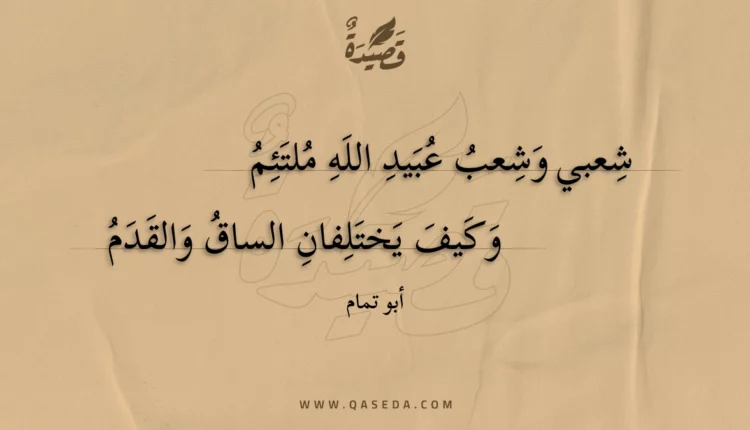 قَصِيدَةٌ
شِعبي وَشِعبُ عُبَيدِ اللَهِ مُلتَئِمُ
وَكَيفَ يَختَلِفانِ الساقُ وَالقَدَمُ
أبو تمام
WWW.QASEDA.COM